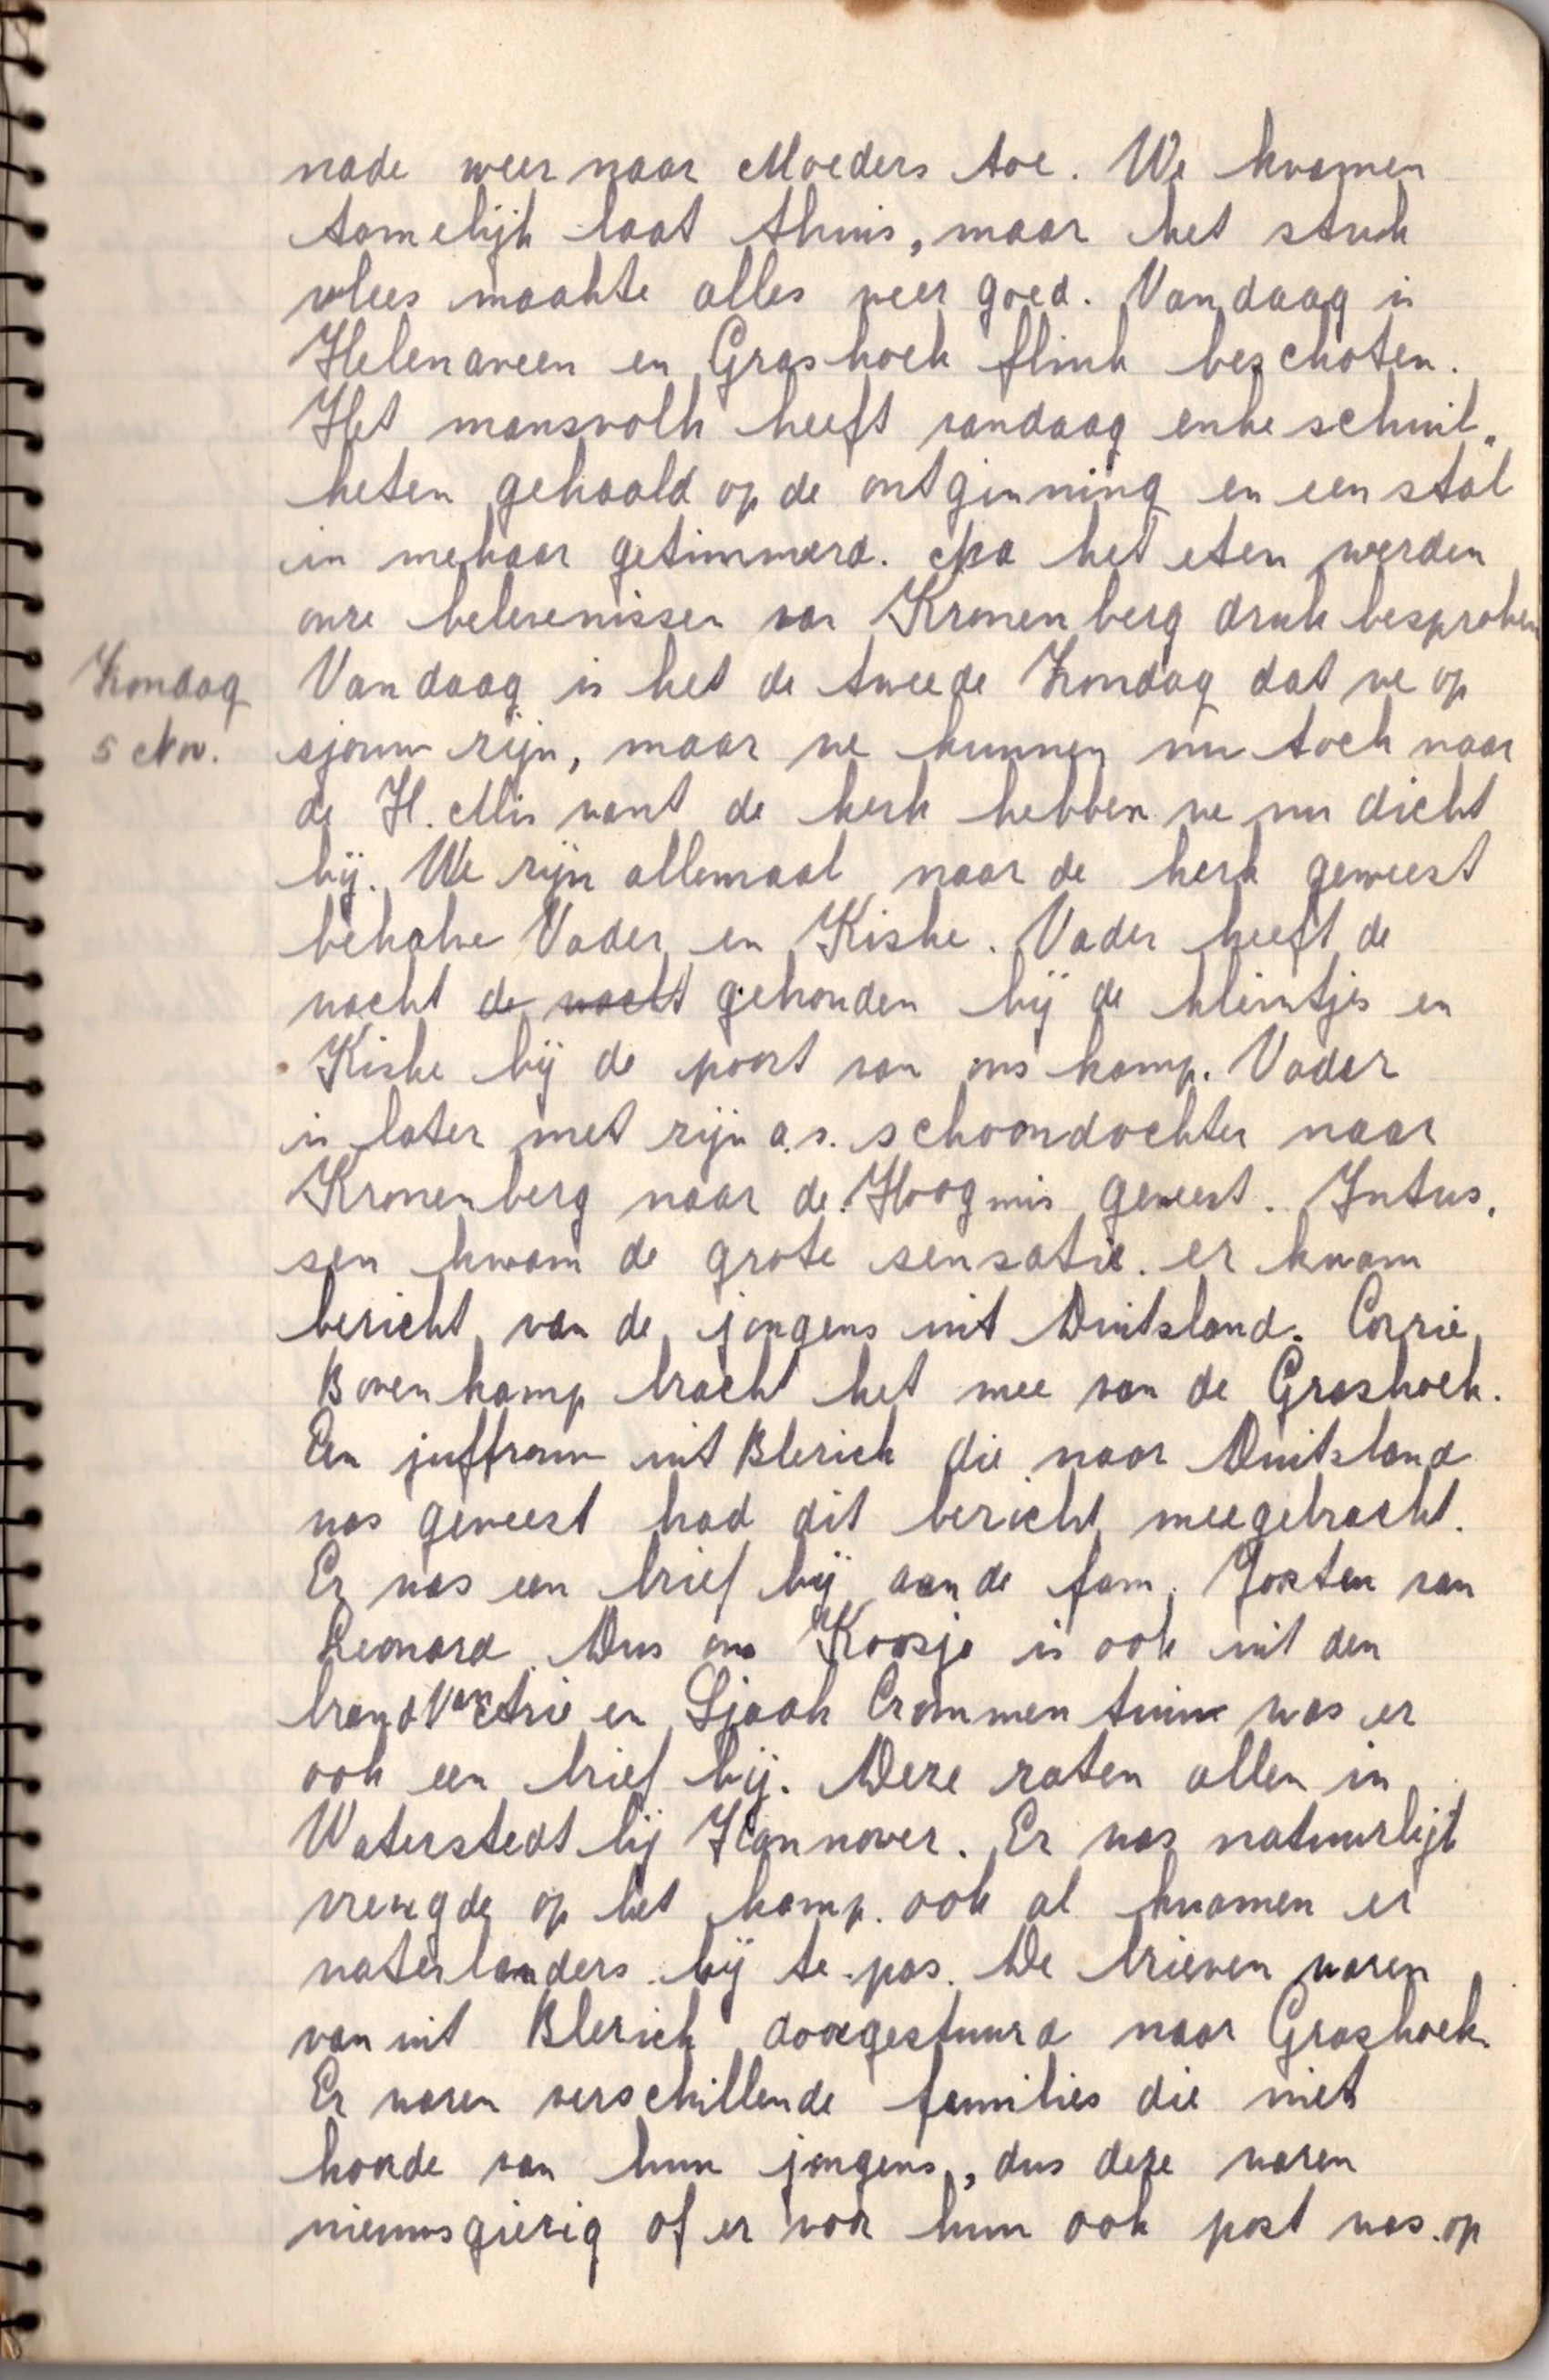 nade weer naar Moeders toe. We kwamen
tamelijk laat thuis, maar het stuk
vlees maakte alles weer goed. Vandaag is
Helenaveen en Grashoek flink beschoten.
Het mansvolk heeft vandaag enke schuil„
keten gehaald op de ontginning en een stal
in mekaar getimmerd. Na het eten werden
onze belevenissen van Kronenberg druk besproken
Zondag Vandaag is het de tweede Zondag dat we op
5 Nov. sjouw zijn, maar we kunnen nu toch naar
de H. Mis want de kerk hebben we nu dicht
bij. We zijn allemaal naar de kerk geweest
behalve Vader en Kiske. Vader heeft de
wacht de wacht gehouden bij de kleintjes en
Kiske bij de poort van ons kamp. Vader
is later met zijn a.s. schoondochter naar
Kronenberg naar de Hoogmis geweest. Intus„
sen kwam de grote sensatie. er kwam
bericht van de jongens uit Duitsland. Corrie
Bovenkamp bracht het mee van de Grashoek.
Een juffrouw uit Blerick die naar Duitsland
was geweest had dit bericht meegebracht.
Er was een brief bij aan de fam. Joosten van
Leonard. Dus ons Koosje is ook uit den
brand Van en Sjaak Crommentuin was er
ook een brief bij. Deze zaten allen in
Waterstedt bij Hannover. Er was natuurlijk
vreugde op het kamp. ook al kwamen er
waterlanders bij te pas. De brieven waren
van uit Blerick doorgestuurd naar Grashoek.
Er waren verschillende families die niet
hoorde van hun jongens, dus deze waren
nieuwsgierig of er voor hun ook post was. op